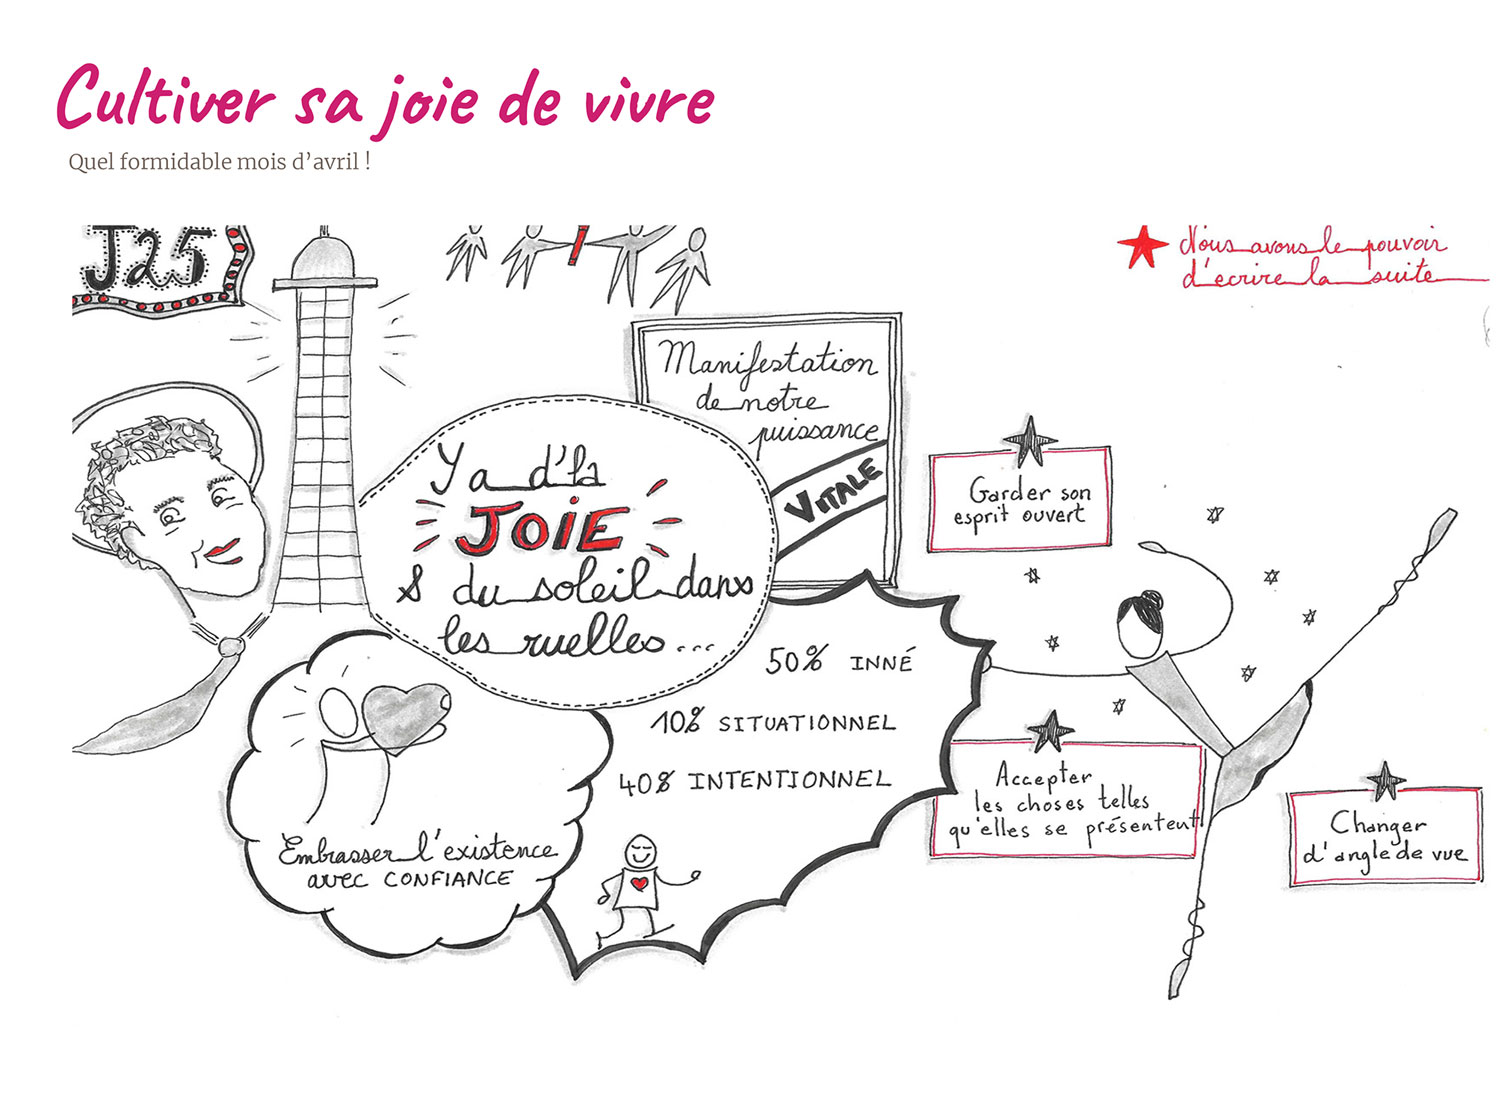 Cultiver sa joie de vivre
Quel formidable mois d’avril !
J25
Nous avons le pouvoir
d'ecrire la suite
Manifestation
de notre
puissance
VITALE
Y a d'la
JOIE
& du soleil dans
les ruelles...
Garder son
esprit ouvert
50% INNÉ
10% SITUATIONNEL
40% INTENTIONNEL
Embrasser l'existence
avec CONFIANCE
Accepter
les choses telles
qu'elles se présentent
Changer
d'angle de vue